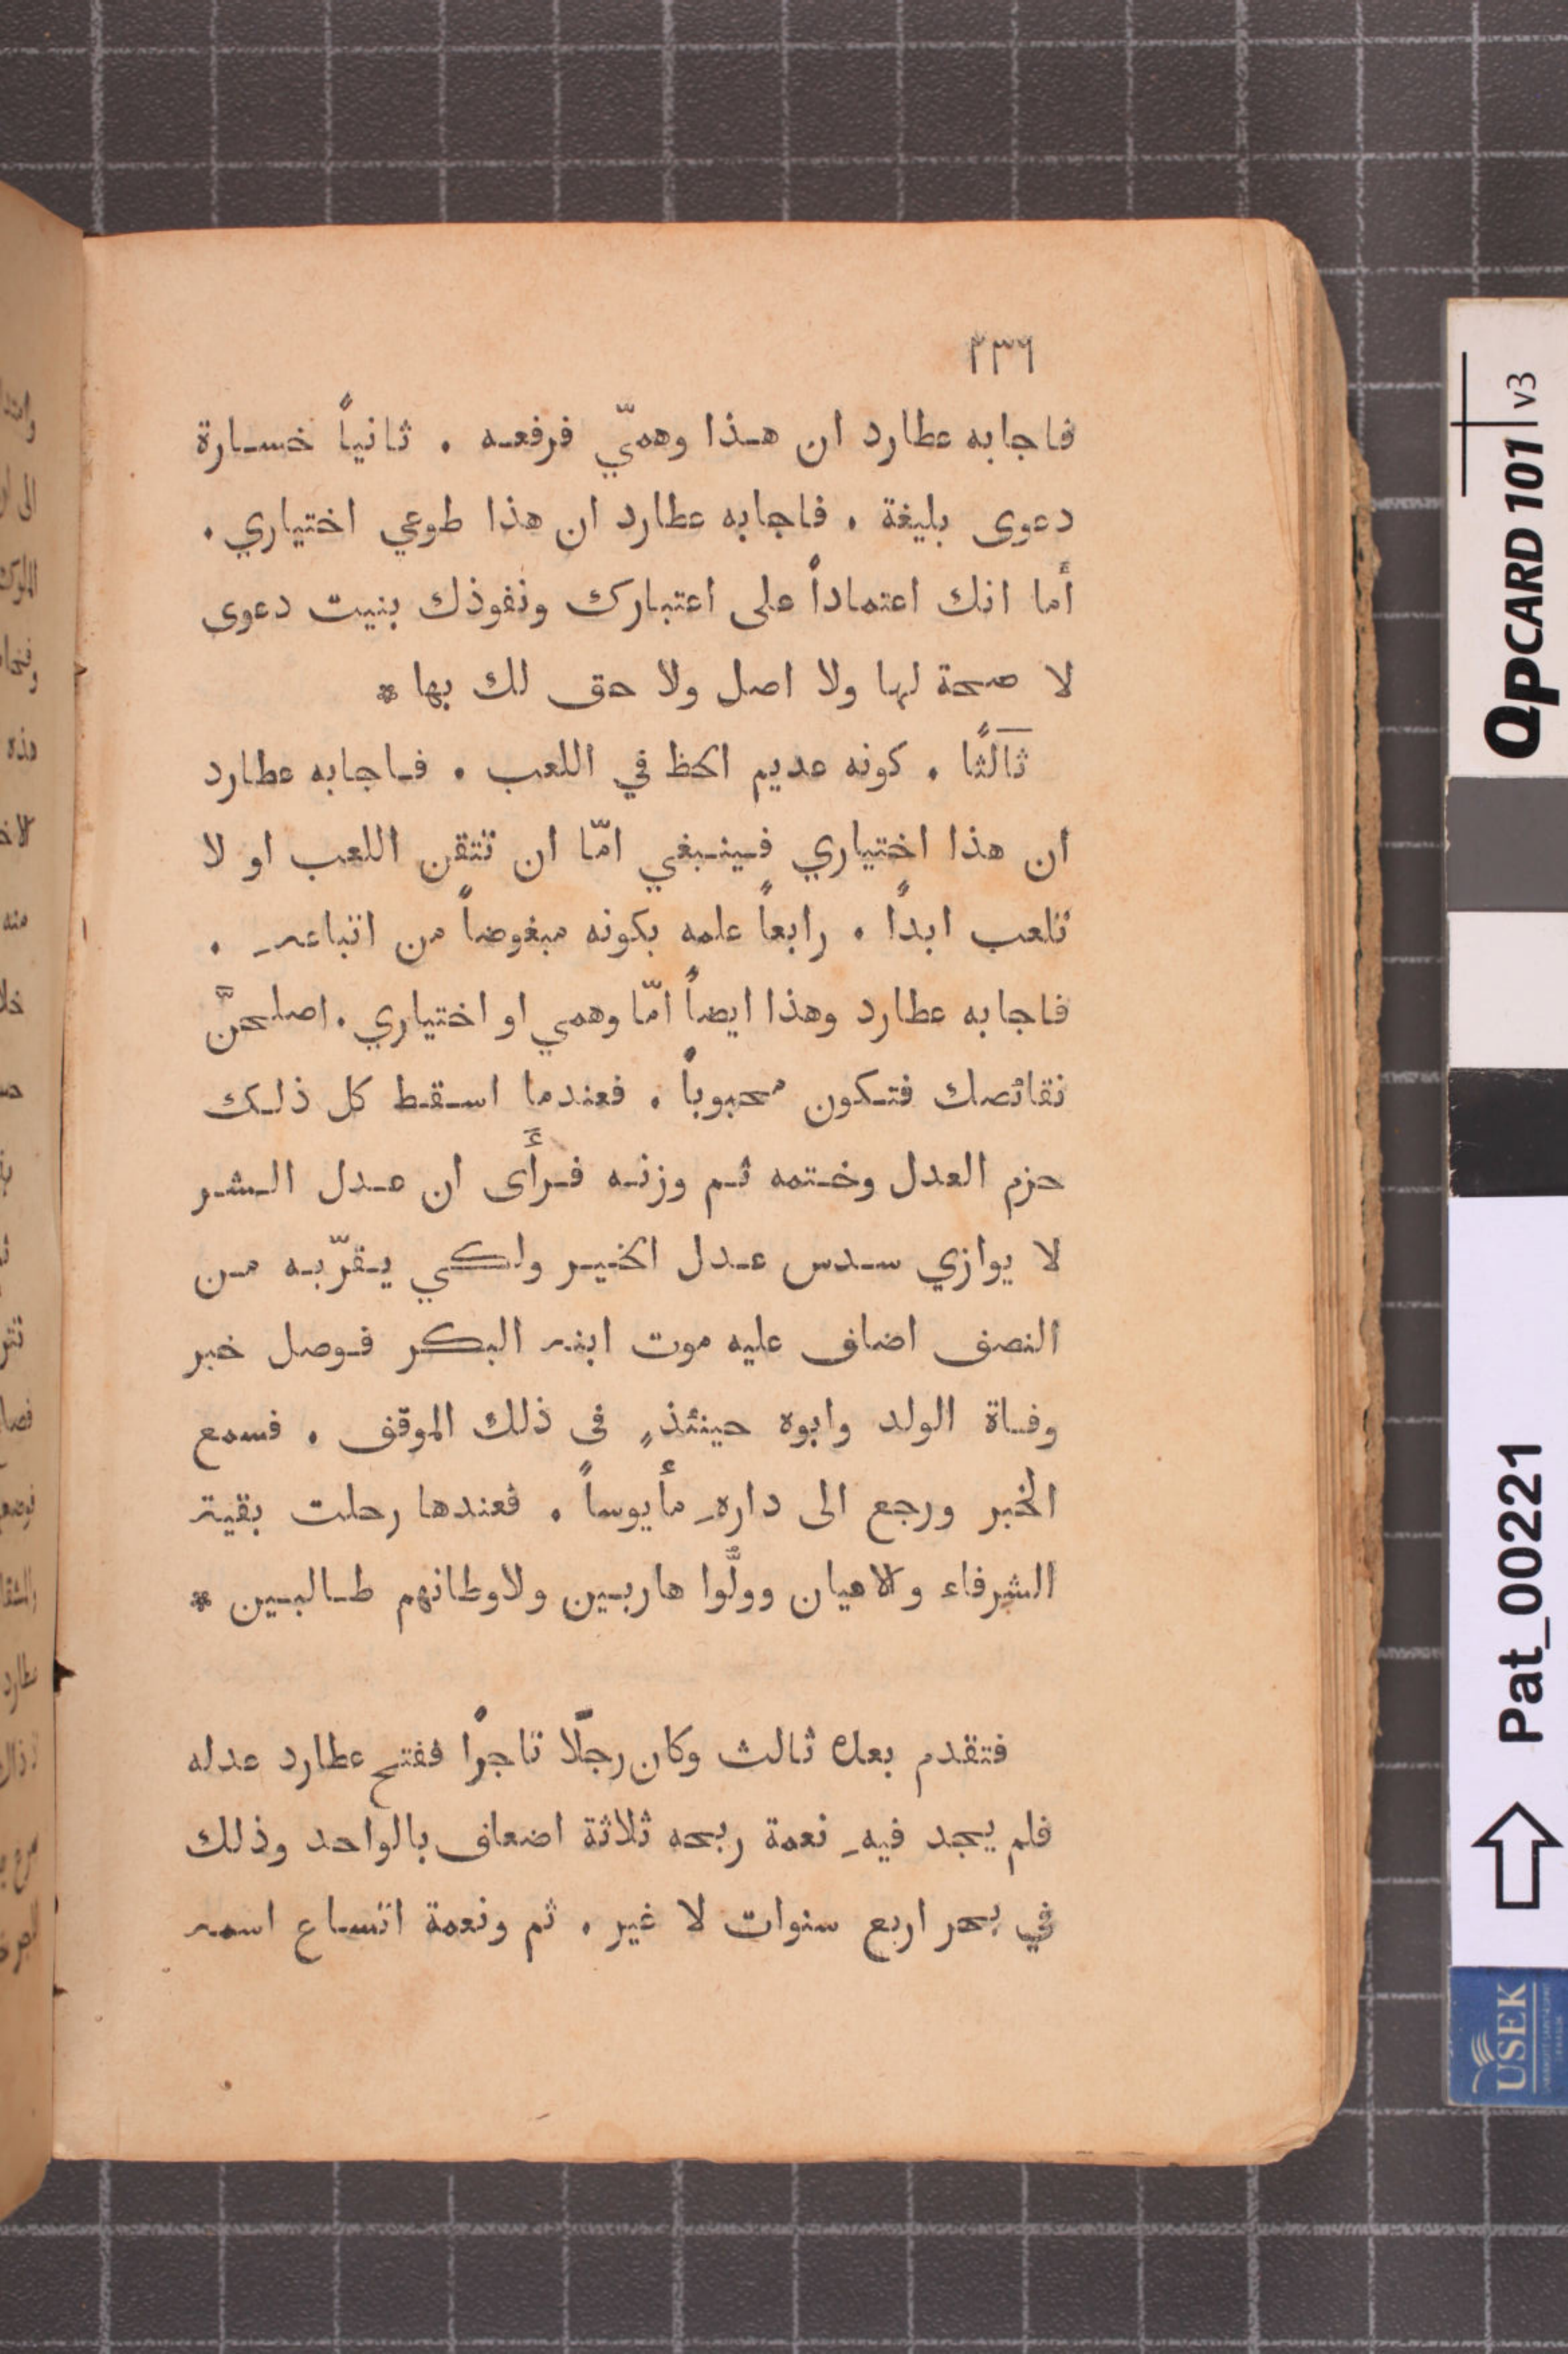 ٢٣٦
فاجابه عطارد ان هذا وهميّ فرفعه . ثانياً خسارة
دعوى بليغة . فاجابه عطارد ان هذا طوعي اختياري .
أما انك اعتماداً على اعتبارك ونفوذك بنيت دعوى
لا صحة لها ولا اصل ولا حق لك بها *
ثالثًا . كونه عديم الحظ في اللعب . فاجابه عطارد
ان هذا اختياري فينبغي امّا ان تتقن اللعب او لا
تلعب ابداً . رابعاً علمه بكونه مبغوضاً من اتباعهِ .
فاجابه عطارد وهذا ايضاً امّا وهمي او اختياري . اصلحنَّ
نقائصك فتكون محبوباً . فعندما اسقط كل ذلك
حزم العدل وختمه ثم وزنه فرأَى ان عدل الشر
لا يوازي سدس عدل الخير ولكي يقرّبه من
النصف اضاف عليه موت ابنه البكر فوصل خبر
وفاة الولد وابوه حينئذٍ فى ذلك الموقف . فسمع
الخبر ورجع الى دارهِ مأيوساً . فعندها رحلت بقية
الشرفاء والاعيان وولَّوا هاربين ولاوطانهم طالبين *
فتقدم بعده ثالث وكان رجلًا تاجرًا ففتح عطارد عدله
فلم يجد فيهِ نعمة ربحه ثلاثة اضعاف بالواحد وذلك
في بحر اربع سنوات لا غير . ثم ونعمة اتساع اسمه
QPCARD 101 v3
Pat_00221
USEK